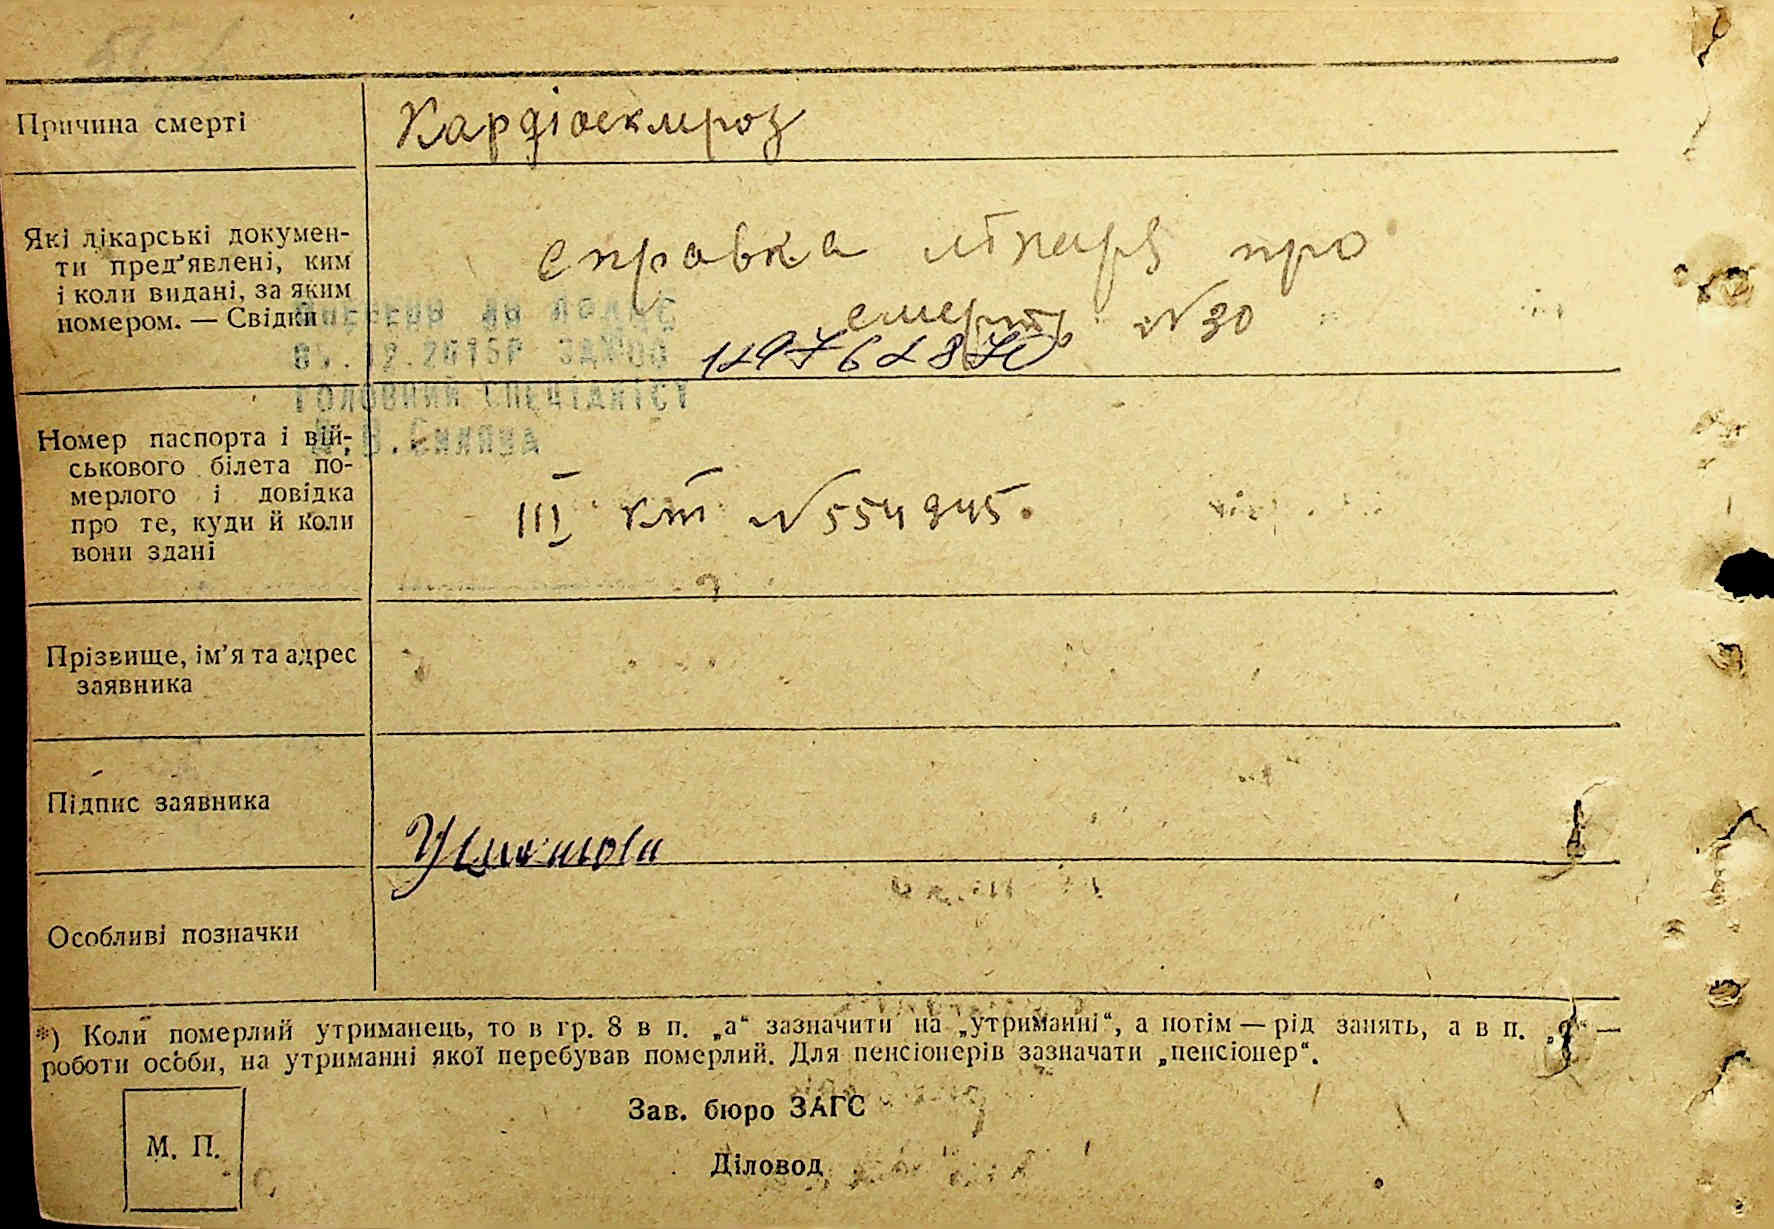 Причина смерті
Кардіосклероз
Які лікарські докумен-
ти пред'явлені, ким
і коли видані, за яким
номером. — Свідки
справка лікаря про
смерть N 30
ГОЛОВНИЙ СПЕЦІАЛІСТ
Номер паспорта і вій-
ськового білета по-
мерлого і довідка
про те, куди й коли
вони здані
III КТ N 554945.
Прізвище, ім'я та адрес
заявника
Підпис заявника
Особливі позначки
*) Коли померлий утриманець, то в гр. 8 в п. „а“ зазначити на „утриманні“, а потім — рід занять, а в п. —
роботи особи, на утриманні якої перебував померлий. Для пенсіонерів зазначати „пенсіонер“.
Зав. бюро ЗАГС
М. П.
Діловод